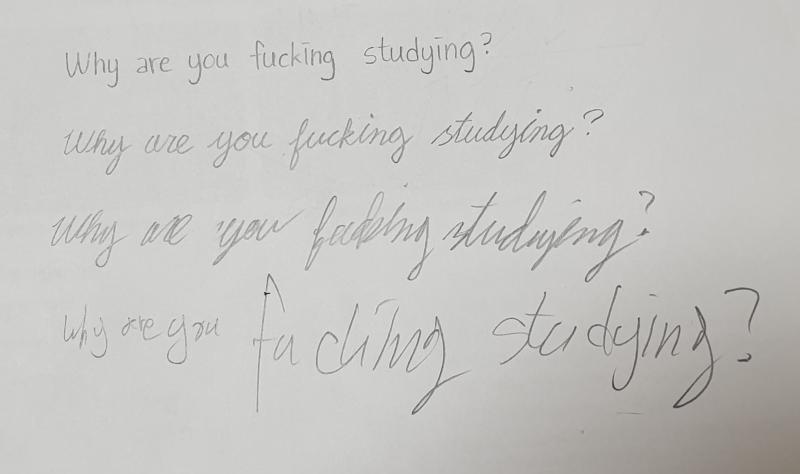 Why are you fucking studying?
Why are you fucking studying?
Why are you fucking studying?
Why are you fucking studying?